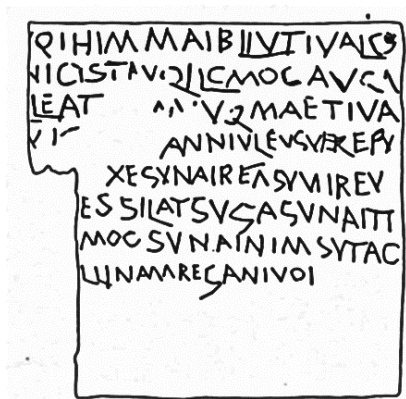 QIHIMMAIBLIVTIVALOV
NICISTAVQILCMOCAVQA
LEAT VQMAETIVA
ANNIVLEVSVEXEPV
XESVNAIREASVVIIREV
ESSILATSVGASVNAITI
MOCSVNAINIMSVTAC
LLINAMREGANIVOI